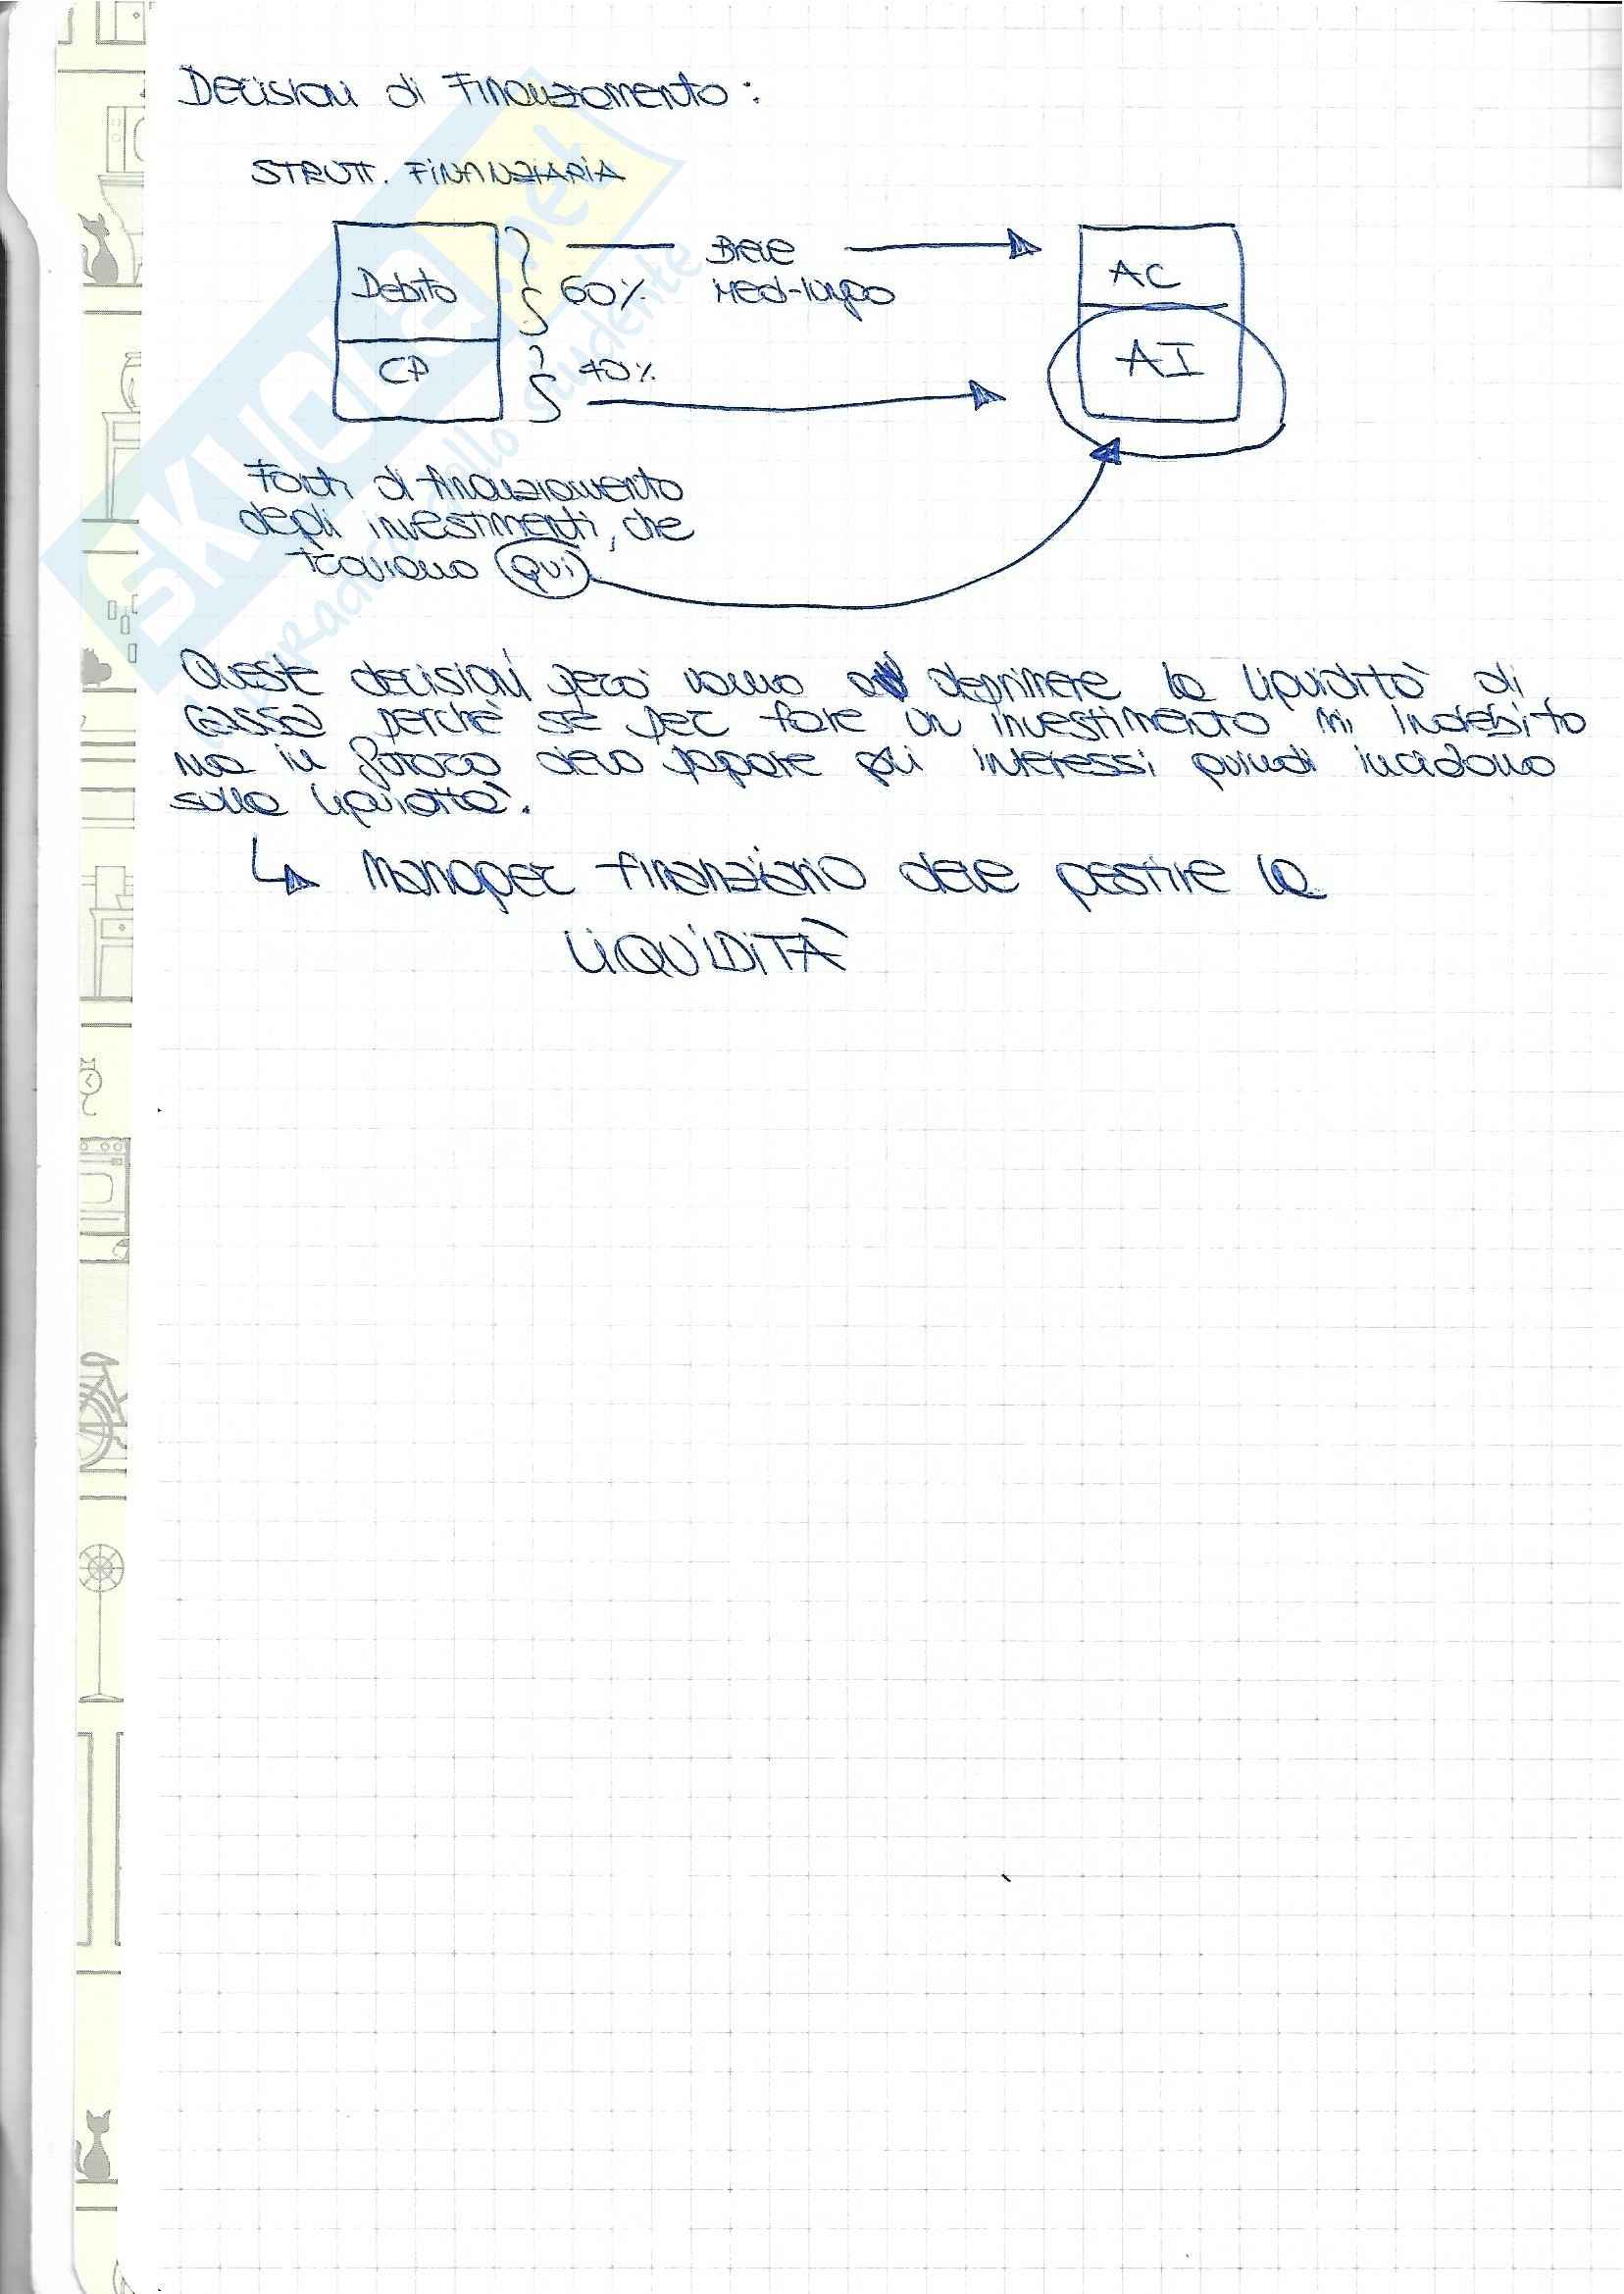 Decisioni di Finanziamento:
STRUTT. FINANZIARIA
Debito 60% Breve AC
Med-lungo
CP 40% AI
Fonti di finanziamento
degli investimenti, che
trovano qui
Queste decisioni però vanno a deprimere la liquidità di
cassa perchè se per fare un investimento mi indebito
ma in futuro devo pagare gli interessi quindi incidono
sulla liquidità.
↳ Manager finanziario deve gestire la
LIQUIDITÀ
SKUOLA.net